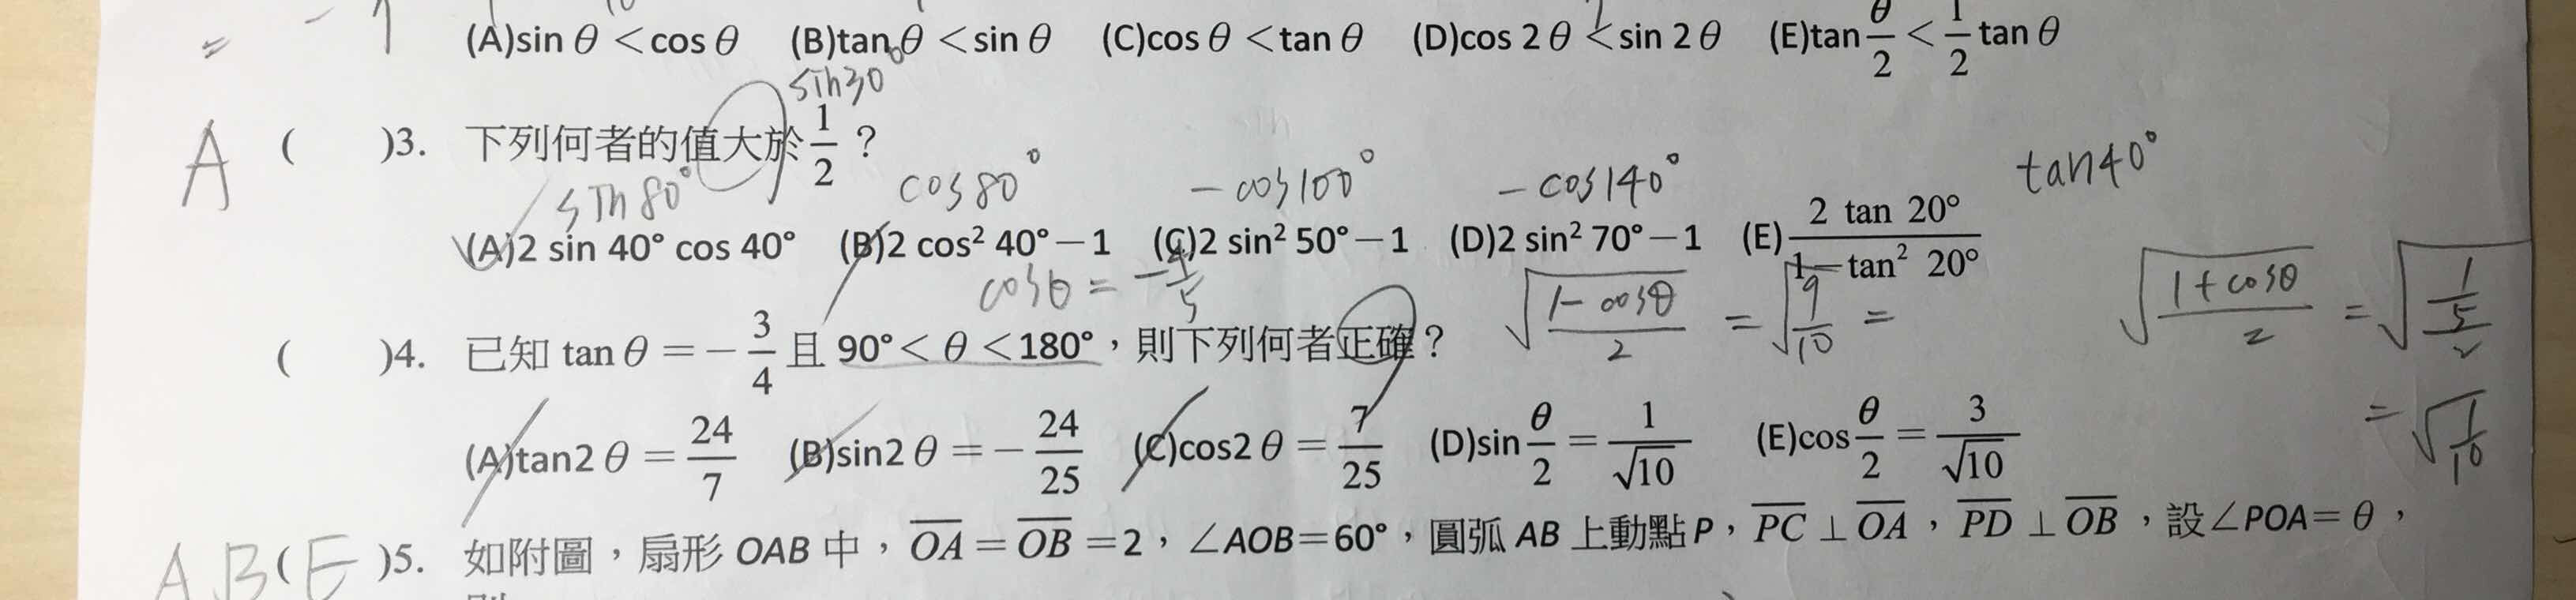 (A)sin θ < cos θ (B)tan θ < sin θ (C)cos θ < tan θ (D)cos 2θ < sin 2θ (E)tan θ/2 < 1/2 tan θ
sin30°
A ( )3. 下列何者的值大於 1/2 ?
sin80° cos80° -cos100° -cos140° tan40°
(A)2 sin 40° cos 40° (B)2 cos² 40°-1 (C)2 sin² 50°-1 (D)2 sin² 70°-1 (E) 2 tan 20° / 1-tan² 20°
cosθ = -4/5 √((1-cosθ)/2) = √(9/10) = √((1+cosθ)/2) = √((1/5)/2)
( )4. 已知 tan θ = -3/4 且 90° < θ < 180°,則下列何者正確?
= √(1/10)
(A)tan2θ = 24/7 (B)sin2θ = -24/25 (C)cos2θ = 7/25 (D)sin θ/2 = 1/√10 (E)cos θ/2 = 3/√10
A B ( E )5. 如附圖,扇形 OAB 中,OA = OB = 2,∠AOB=60°,圓弧 AB 上動點 P,PC ⊥ OA,PD ⊥ OB,設∠POA= θ,